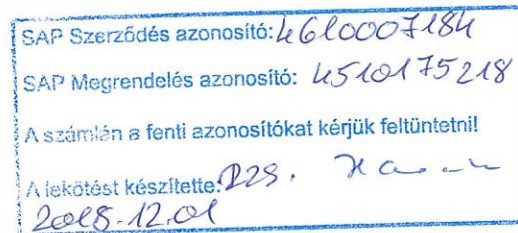 SAP Szerződés azonosító: 4610007184
SAP Megrendelés azonosító: 4510175218
A számlán a fenti azonosítókat kérjük feltüntetni!
A lekötést készítette:
2018.12.01